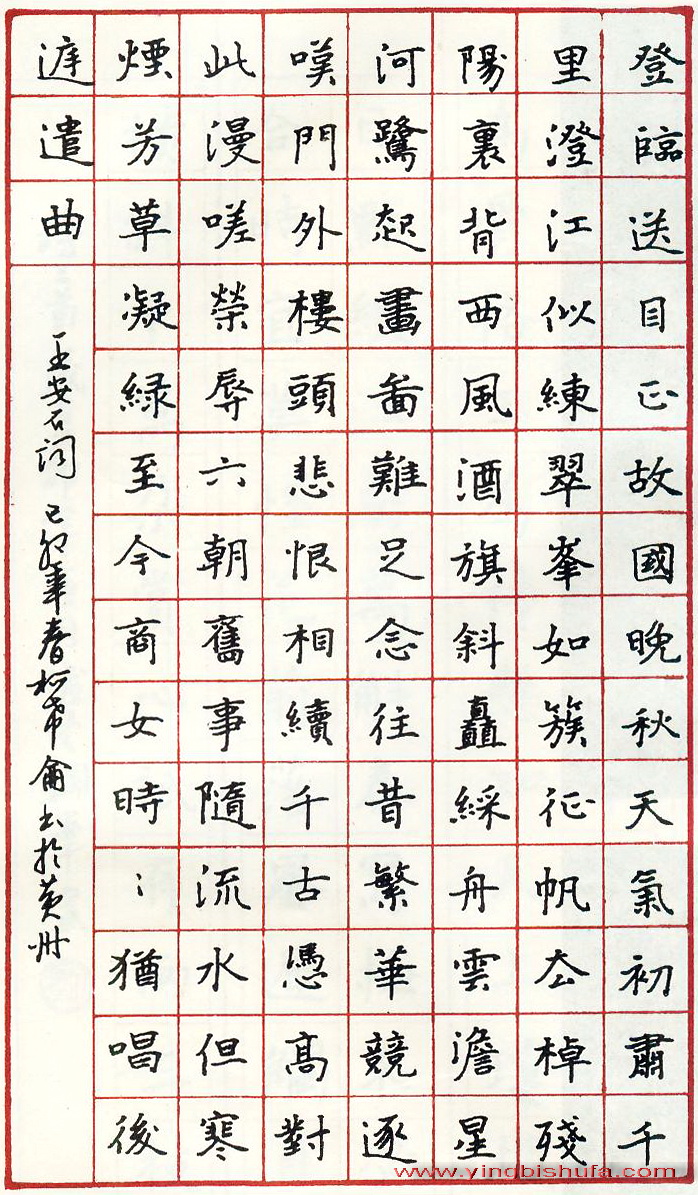 登臨送目正故國晚秋天氣初肅千
里澄江似練翠峯如簇征帆去棹殘
陽裏背西風酒旗斜矗綵舟雲澹星
河鷺起畫啚難足念往昔繁華競逐
嘆門外樓頭悲恨相續千古憑高對
此漫嗟榮辱六朝舊事隨流水但寒
煙芳草凝緑至今商女時〻猶唱後
庭遣曲
王安石詞 己卯年春 书於黄州
www.yingbishufa.com